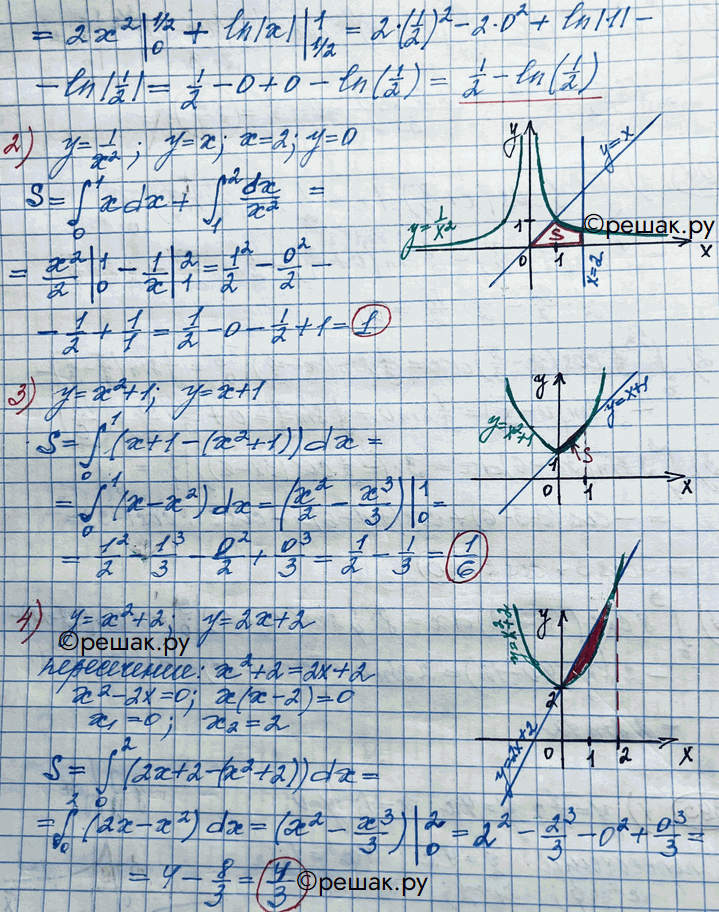 = 2x²|₀^{1/2} + ln|x||_{1/2}^1 = 2·(1/2)² - 2·0² + ln|1| -
- ln|1/2| = 1/2 - 0 + 0 - ln(1/2) = 1/2 - ln(1/2)
2) y = 1/x²; y = x; x = 2; y = 0
S = ∫₀¹ x dx + ∫₁² dx/x² =
= x²/2|₀¹ - 1/x|₁² = 1²/2 - 0²/2 -
- 1/2 + 1/1 = 1/2 - 0 - 1/2 + 1 = 1
y
y = x
y = 1/x²
1
S
©решак.ру
0
1
x = 2
x
3) y = x² + 1; y = x + 1
S = ∫₀¹ (x + 1 - (x² + 1)) dx =
= ∫₀¹ (x - x²) dx = (x²/2 - x³/3)|₀¹ =
= 1²/2 - 1³/3 - 0²/2 + 0³/3 = 1/2 - 1/3 = 1/6
y
y = x² + 1
y = x + 1
S
1
0
1
x
4) y = x² + 2; y = 2x + 2
©решак.ру
пересечение: x² + 2 = 2x + 2
x² - 2x = 0; x(x - 2) = 0
x₁ = 0; x₂ = 2
S = ∫₀² (2x + 2 - (x² + 2)) dx =
= ∫₀² (2x - x²) dx = (x² - x³/3)|₀² = 2² - 2³/3 - 0² + 0³/3 =
= 4 - 8/3 = 4/3
©решак.ру
y
y = x² + 2
2
y = 2x + 2
0
1
2
x